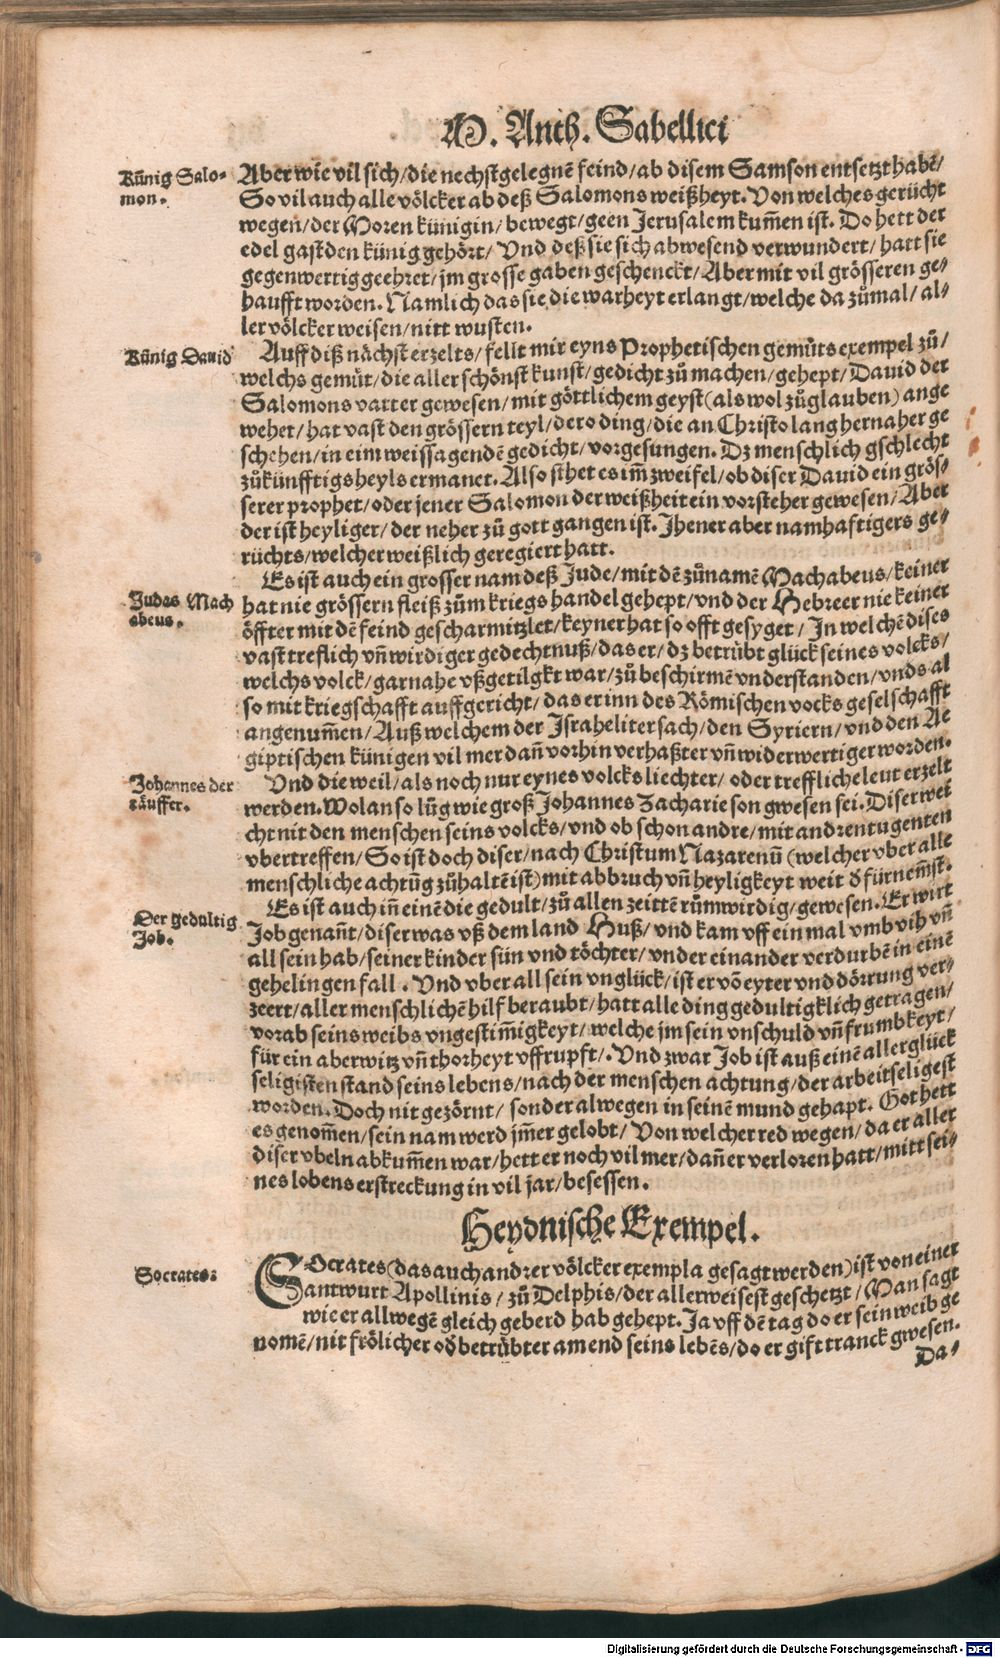 M. Anth. Sabellici
Künig Salo-
mon.
Aber wie vil sich/die nechstgelegnē feind/ab disem Samson entsetzt habē/
So vil auch alle völcker ab deß Salomons weißheyt. Von welches gerücht
wegen/der Moren künigin/bewegt/geen Jerusalem kum̃en ist. Do hett der
edel gast den künig gehört/Vnd deß sie sich abwesend verwundert/hatt sie
gegenwertig geehret/jm grosse gaben geschenckt/Aber mit vil grösseren ge-
haufft worden. Namlich das sie die warheyt erlangt/welche da zůmal/al-
ler völcker weisen/nitt wusten.
Künig Dauid
Auff diß nächst erzelts/fellt mir eyns Prophetischen gemüts exempel zů/
welchs gemüt/die aller schönst kunst/gedicht zů machen/gehept/Dauid der
Salomons vatter gewesen/mit göttlichem geyst(als wol zůglauben)ange
wehet/hat vast den grössern teyl/dero ding/die an Christo lang hernaher ge
schehen/in eim weissagendē gedicht/vorgesungen. Dz menschlich gschlecht
zůkünfftigs heyls ermanet. Also sthet es im̃ zweifel/ob diser Dauid ein grös-
serer prophet/oder jener Salomon der weißheit ein vorsteher gewesen/Aber
der ist heyliger/der neher zů gott gangen ist. Jhener aber namhaftigers ge-
rüchts/welcher weißlich geregiert hatt.
Judas Mach
abeus.
Es ist auch ein grosser nam deß Jude/mit dē zůnamē Machabeus/keiner
hat nie grössern fleiß zům kriegs handel gehept/vnd der Hebreer nie keiner
öffter mit dē feind gescharmitzlet/keyner hat so offt gesyget/In welchē dises
vast treflich vñ wirdiger gedechtnuß/das er/dz betrübt glück seines volcks/
welchs volck/gar nahe vßgetilgkt war/zů beschirmē vnderstanden/vnds al
so mit kriegschafft auffgericht/das er inn des Römischen vocks geselschafft
angenum̃en/Auß welchem der Israheliter sach/den Syriern/vnd den Ae
giptischen künigen vil mer dañ vorhin verhaßter vñ widerwertiger worden.
Johannes der
täuffer.
Vnd die weil/als noch nur eynes volcks liechter/oder treffliche leut erzelt
werden. Wolan so lůg wie groß Johannes Zacharie son gwesen sei. Diser wei
cht nit den menschen seins volcks/vnd ob schon andre/mit andren tugenten
vbertreffen/So ist doch diser/nach Christum Nazarenū (welcher vber alle
menschliche achtūg zůhaltē ist)mit abbruch vñ heyligkeyt weit d̄ fürnem̃st.
Der gedultig
Job.
Es ist auch iñ einē die gedult/zů allen zeittē růmwirdig/gewesen. Er wirt
Job genañt/diser was vß dem land Huß/vnd kam vff ein mal vmb vih vñ
all sein hab/seiner kinder sün vnd töchter/vnder einander verdurbē in einē
gehelingen fall. Vnd vber all sein vnglück/ist er vō eyter vnd dörrung ver-
zeert/aller menschlichē hilf beraubt/hatt alle ding gedultigklich getragen/
vorab seins weibs vngestim̃igkeyt/welche jm sein vnschuld vñ frumbkeyt/
für ein aberwitz vñ thorheyt vffrupft/. Vnd zwar Job ist auß einē allerglück
seligisten stand seins lebens/nach der menschen achtung/der arbeitseligest
worden. Doch nit gezörnt/sonder alwegen in seinē mund gehapt. Got hett
es genom̃en/sein nam werd jm̃er gelobt/Von welcher red wegen/da er aller
diser vbeln abkum̃en war/hett er noch vil mer/dañ er verloren hatt/mitt sei-
nes lobens erstreckung in vil jar/besessen.
Heydnische Exempel.
Socrates:
SOcrates(das auch andrer völcker exempla gesagt werden)ist von einer
antwurt Apollinis/zů Delphis/der allerweisest geschetzt/Man sagt
wie er allwegē gleich geberd hab gehept. Ja vff dē tag do er sein weib ge
nomē/nit frölicher od̄ betrübter am end seins lebēs/do er gift tranck gwesen.
Da-
Digitalisierung gefördert durch die Deutsche Forschungsgemeinschaft - DFG